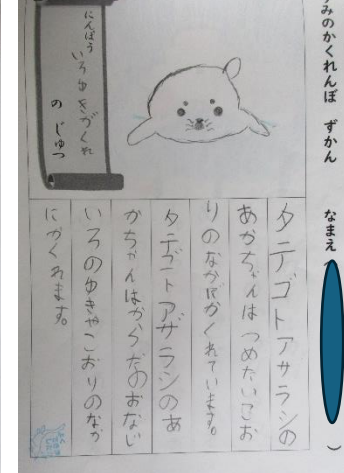 みのかくれんぼ ずかん なまえ（ ）
にんぽう
いろゆきがくれ
の じゅつ
タテゴトアサラシの
あかちゃんは つめたいこお
りのなかにかくれています。
タテゴトアザラシのあ
かちゃんはからだのおなじ
いろのゆきやこおりのなか
にかくれます。